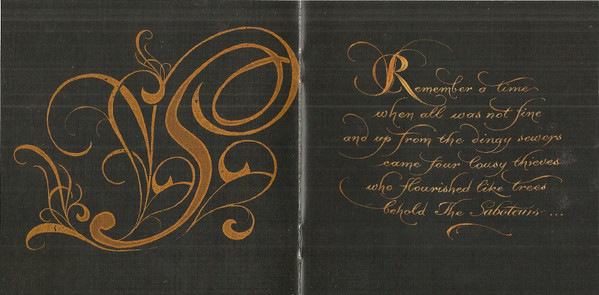 S
Remember a time
when all was not fine
and up from the dingy sewers
came four lousy thieves
who flourished like trees
behold The Saboteurs ...